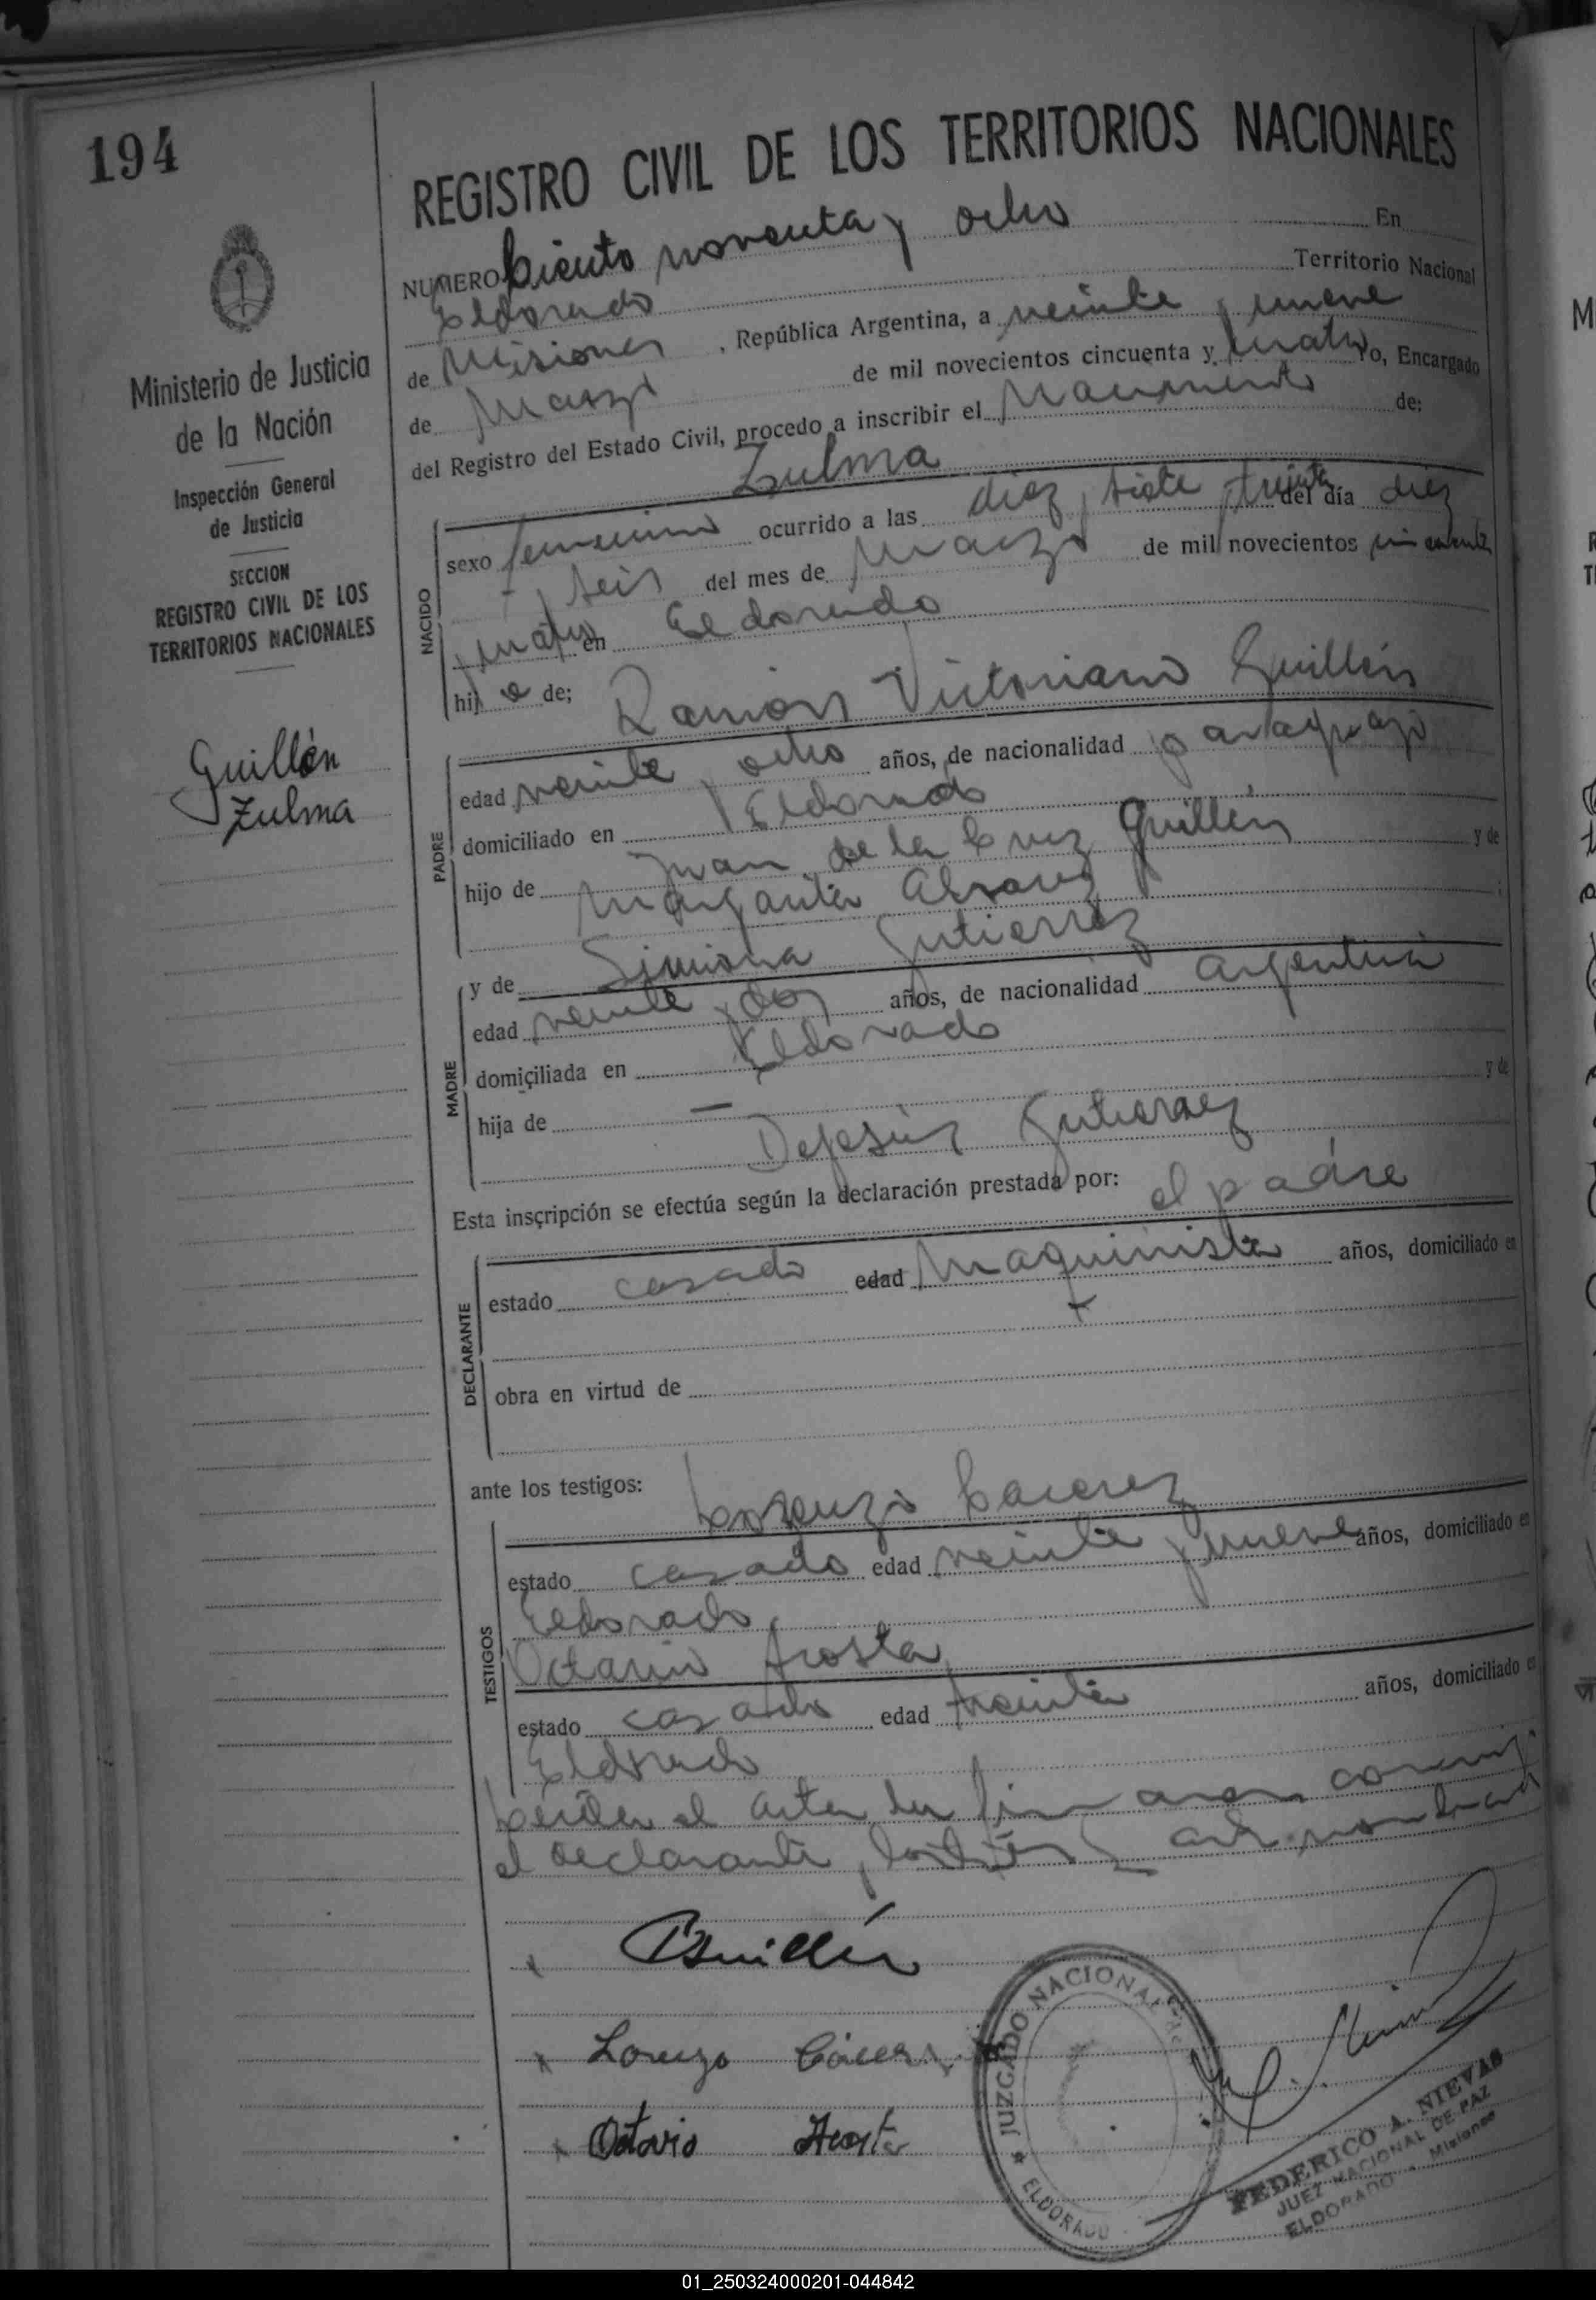 194
REGISTRO CIVIL DE LOS TERRITORIOS NACIONALES
NUMERO Ciento noventa y ocho En
Eldorado Territorio Nacional
de Misiones, República Argentina, a veinte y nueve
de Marzo de mil novecientos cincuenta y cuatro Yo, Encargado
del Registro del Estado Civil, procedo a inscribir el Nacimiento de:
Zulma
NACIDO
sexo femenino ocurrido a las diez y siete y treinta del día diez
y seis del mes de Marzo de mil novecientos cincuenta
y cuatro en Eldorado
hija de; Ramón Victoriano Guillén
PADRE
edad veinte y ocho años, de nacionalidad paraguayo
domiciliado en Eldorado
hijo de Juan de la Cruz Guillén y de
Margarita Alvarez ;
y de Simiona Gutierrez
MADRE
edad veinte y dos años, de nacionalidad argentina
domiciliada en Eldorado
hija de — y de
Dejesús Gutierrez
Esta inscripción se efectúa según la declaración prestada por: el padre
DECLARANTE
estado casado edad Maquinista años, domiciliado en
obra en virtud de
ante los testigos: Lorenzo Caceres
TESTIGOS
estado casado edad veinte y nueve años, domiciliado en
Eldorado
Octavio Acosta
estado casado edad treinta años, domiciliado en
Eldorado
Leída el acta la firmaron conmigo
el declarante y los testigos
Guillén
Lorenzo Cáceres
Octavio Acosta
JUZGADO NACIONAL
ELDORADO
FEDERICO A. NIEVAS
JUEZ NACIONAL DE PAZ
ELDORADO - Misiones
Ministerio de Justicia
de la Nación
Inspección General
de Justicia
SECCION
REGISTRO CIVIL DE LOS
TERRITORIOS NACIONALES
Guillén
Zulma
01_250324000201-044842